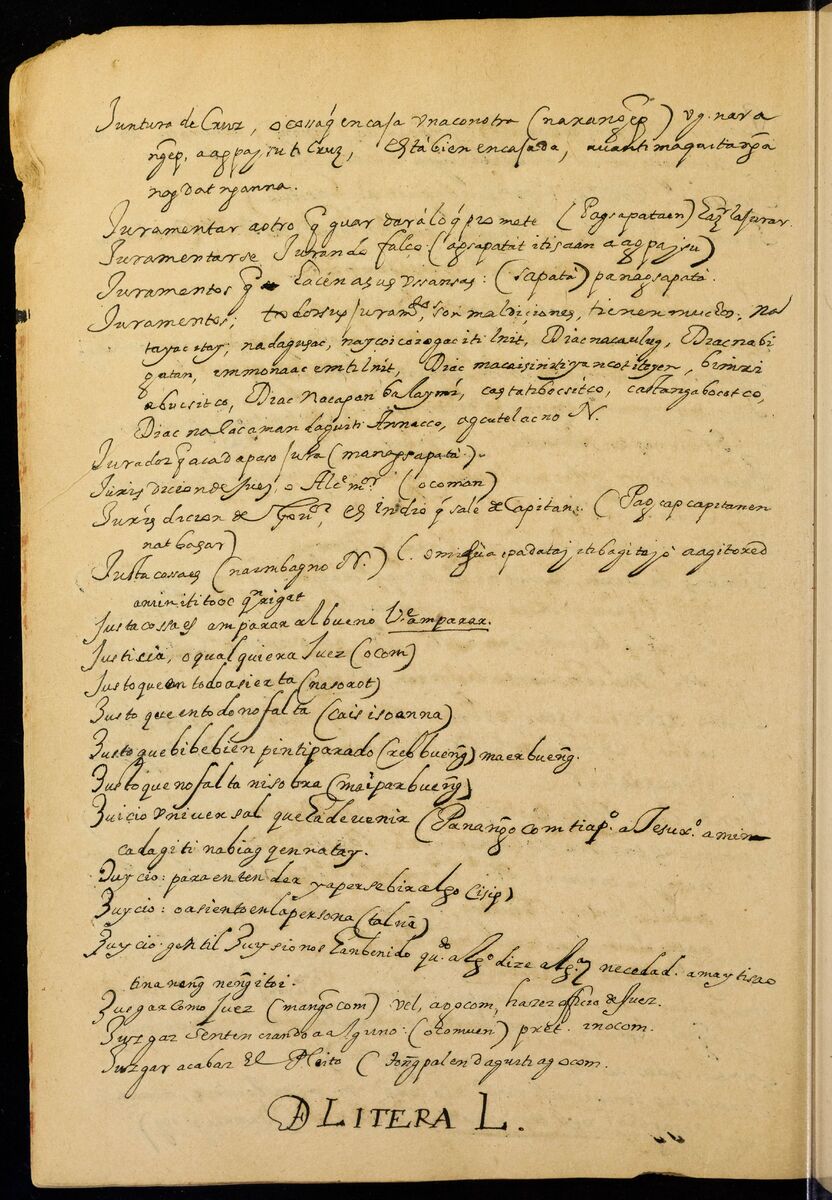 Juntura de Cruz, o cossa q̃ encasa vna con otra (naranḡep) vg. nara
ngẽp, a agpaysu ti Cruz, Está bien encasada, auan ti maquitangã
nag dat nganna.
Juramentar a otro q̃ guardará lo q̃ promete (Pagsapataen) haz.r la jurar.
Juramentarse Jurando falso (agsapatàt itisaan a agpaysu)
Juramentos q̃ hacen a sus vssansas: (sapatà) panagsapatà.
Juramentos; todos sus juram.tos, son maldiciones, tienen muchos, na
tayac itay, nadagusac, naycoicoiogac iti lnit, Diac nacaulug, Diac nabi
gatan, immonaac emti lnit, Diac macaisinixiyancot iteyen, bimxi
abucsitco, Diac nacapanbalaymí, castatiboesitco, castanga bocotco,
Diac nalacaman daguiti Annacco, agcutelacno N.
Jurador q̃ a cada paso jura (managsapatà).
Jurisdicion de Juez, o Alc.e m.or (ocoman)
Jurisdicion de Gou.or, Es indio q̃ sale de Capitan: (Pagcapcapitanen
nat bagay)
Justa cossa es (naimbagno N.) (. omisùa epadatay iti bagitayo a agitored
amin ititooc q.n rigat
Justa cossa es amparar al bueno V.e amparar.
Justicia, o qualquiera Juez (ocom)
Justo que en todo asierta (nasorot)
Justo que en todo no falta (caisisoanna)
Justo que bibe bien pintiparado (reb buenḡ) maerbuenḡ.
Justo que no falta ni sobra (maiparbuenḡ)
Juicio vniversal que ha de venir (Pananḡocom ti ap.o a Jesuxp.o amin
cadagiti nabiag q̃ennatay.
Juycio: para entender y apersebir algo (isip)
Juycio: o asiento en la persona (talnã)
Juycio gentil Juysio nos ha benido qu.do alg.o dize alg.a necedad. amaytisao
tinanenḡ nenḡitoi.
Jusgar como Juez (manḡocom) vel, agocom, hazer oficio de Juez.
Juzgar sentenciando a alguno: (ocomuen) pret. inocom.
Juzgar acabar El Pleito (Tonḡpalen daguiti agocom.
D LITERA L.